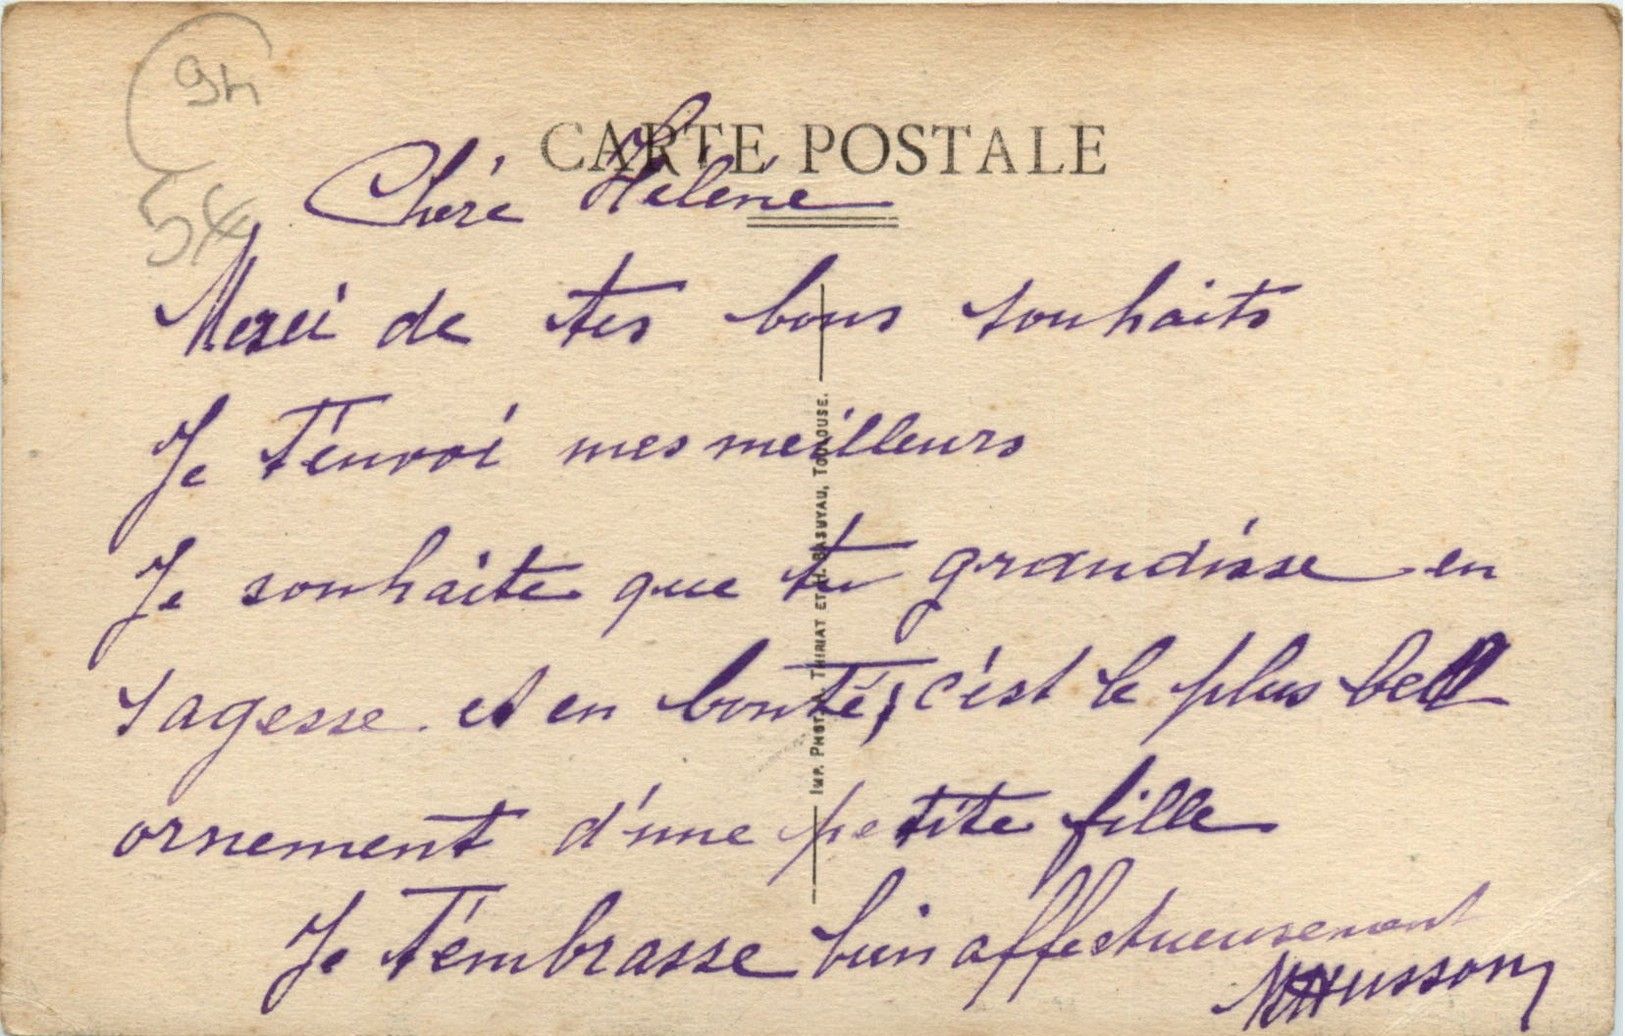 94
CARTE POSTALE
54
Chére Hélène
Merci de tes bons souhaits
Je t'envoi mes meilleurs
Je souhaite que tu grandisse en
sagesse et en bonté, c'est le plus bell
ornement d'une petite fille
Je t'embrasse bien affectueusement
Husson
IMP. PHOT. THIRIAT ET H. BASUYAU, TOULOUSE.